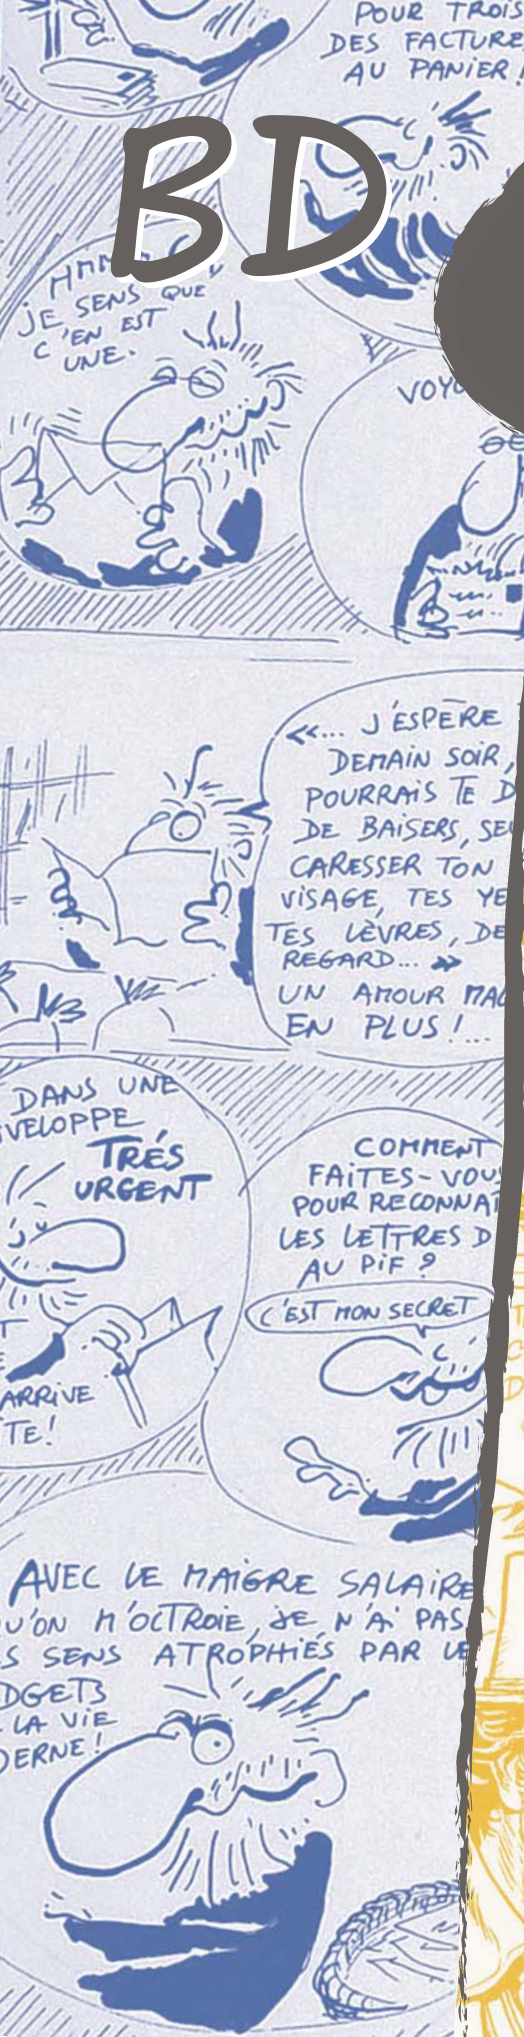 POUR TROIS
DES FACTURE
AU PANIER!
BD
JE SENS QUE
C'EN EST
UNE.
VOYO
«... J'ESPÈRE
DEMAIN SOIR,
POURRAIS TE D
DE BAISERS, SEU
CARESSER TON
VISAGE, TES YE
TES LÈVRES, DE
REGARD... »
UN AMOUR MAL
EN PLUS!...
DANS UNE
VELOPPE
TRÉS
URGENT
ARRIVE
TE!
COMMENT
FAITES-VOUS
POUR RECONNAÎ
LES LETTRES D
AU PIF?
C'EST MON SECRET
AVEC LE MAIGRE SALAIRE
U'ON M'OCTROIE, JE N'AI PAS
S SENS ATROPHIÉS PAR LE
DGETS
LA VIE
DERNE!